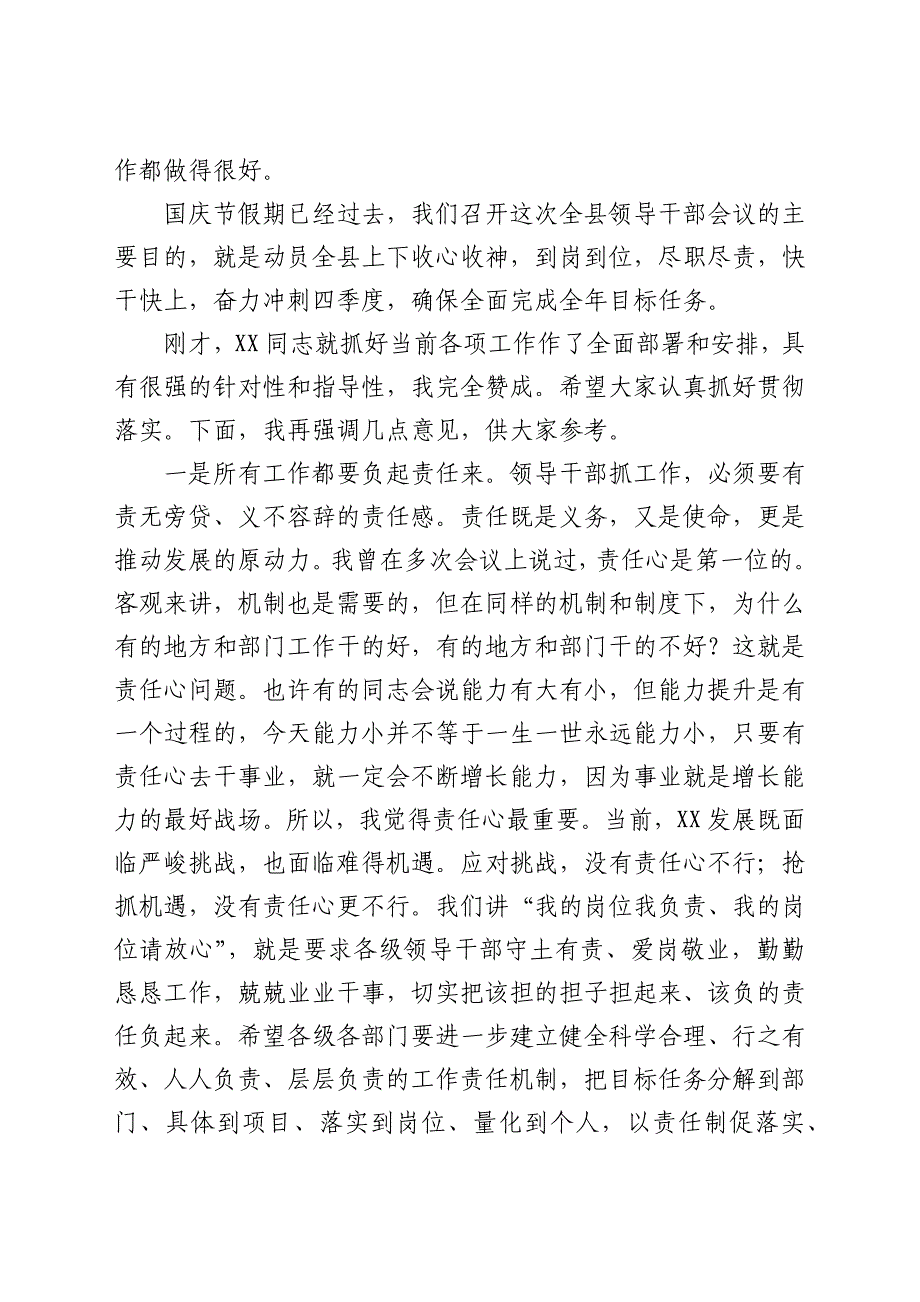 作都做得很好。
国庆节假期已经过去，我们召开这次全县领导干部会议的主
要目的，就是动员全县上下收心收神，到岗到位，尽职尽责，快
干快上，奋力冲刺四季度，确保全面完成全年目标任务。
刚才，XX 同志就抓好当前各项工作作了全面部署和安排，具
有很强的针对性和指导性，我完全赞成。希望大家认真抓好贯彻
落实。下面，我再强调几点意见，供大家参考。
一是所有工作都要负起责任来。领导干部抓工作，必须要有
责无旁贷、义不容辞的责任感。责任既是义务，又是使命，更是
推动发展的原动力。我曾在多次会议上说过，责任心是第一位的。
客观来讲，机制也是需要的，但在同样的机制和制度下，为什么
有的地方和部门工作干的好，有的地方和部门干的不好？这就是
责任心问题。也许有的同志会说能力有大有小，但能力提升是有
一个过程的，今天能力小并不等于一生一世永远能力小，只要有
责任心去干事业，就一定会不断增长能力，因为事业就是增长能
力的最好战场。所以，我觉得责任心最重要。当前，XX 发展既面
临严峻挑战，也面临难得机遇。应对挑战，没有责任心不行；抢
抓机遇，没有责任心更不行。我们讲“我的岗位我负责、我的岗
位请放心”，就是要求各级领导干部守土有责、爱岗敬业，勤勤
恳恳工作，兢兢业业干事，切实把该担的担子担起来、该负的责
任负起来。希望各级各部门要进一步建立健全科学合理、行之有
效、人人负责、层层负责的工作责任机制，把目标任务分解到部
门、具体到项目、落实到岗位、量化到个人，以责任制促落实、